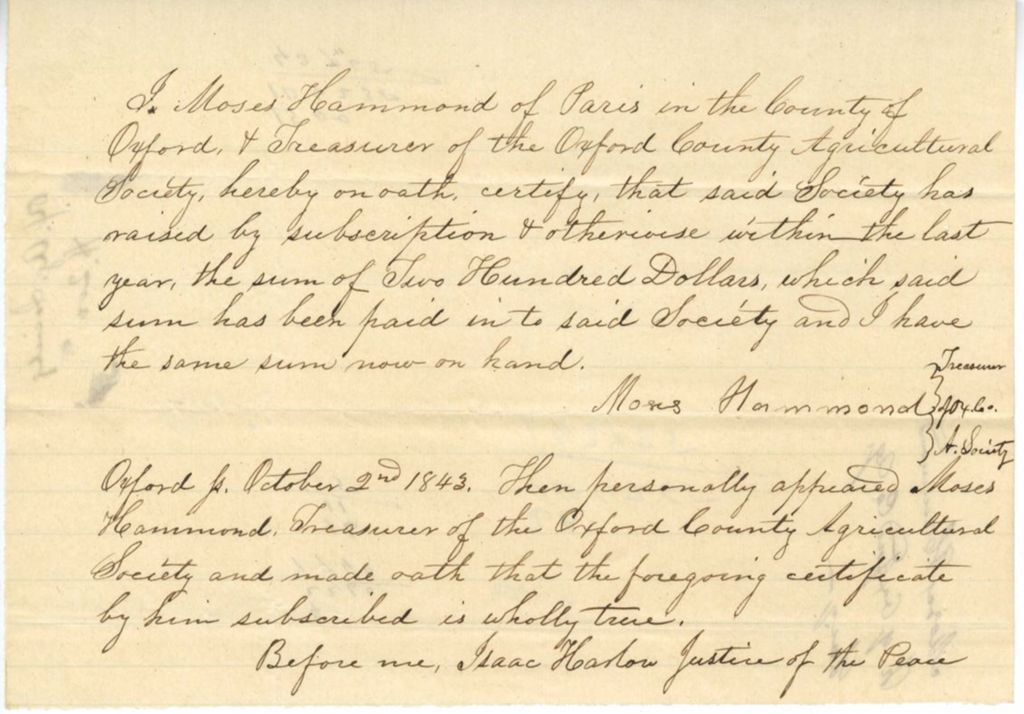 I. Moses Hammond of Paris in the County of
Oxford, & Treasurer of the Oxford County Agricultural
Society, hereby on oath, certify, that said Society has
raised by subscription & otherwise within the last
year, the sum of Two Hundred Dollars, which said
sum has been paid in to said Society and I have
the same sum now on hand.
Moses Hammond } Treasurer
of Ox. Co.
A. Society
Oxford ss. October 2nd 1843. Then personally appeared Moses
Hammond, Treasurer of the Oxford County Agricultural
Society and made oath that the foregoing certificate
by him subscribed is wholly true.
Before me, Isaac Harlow Justice of the Peace